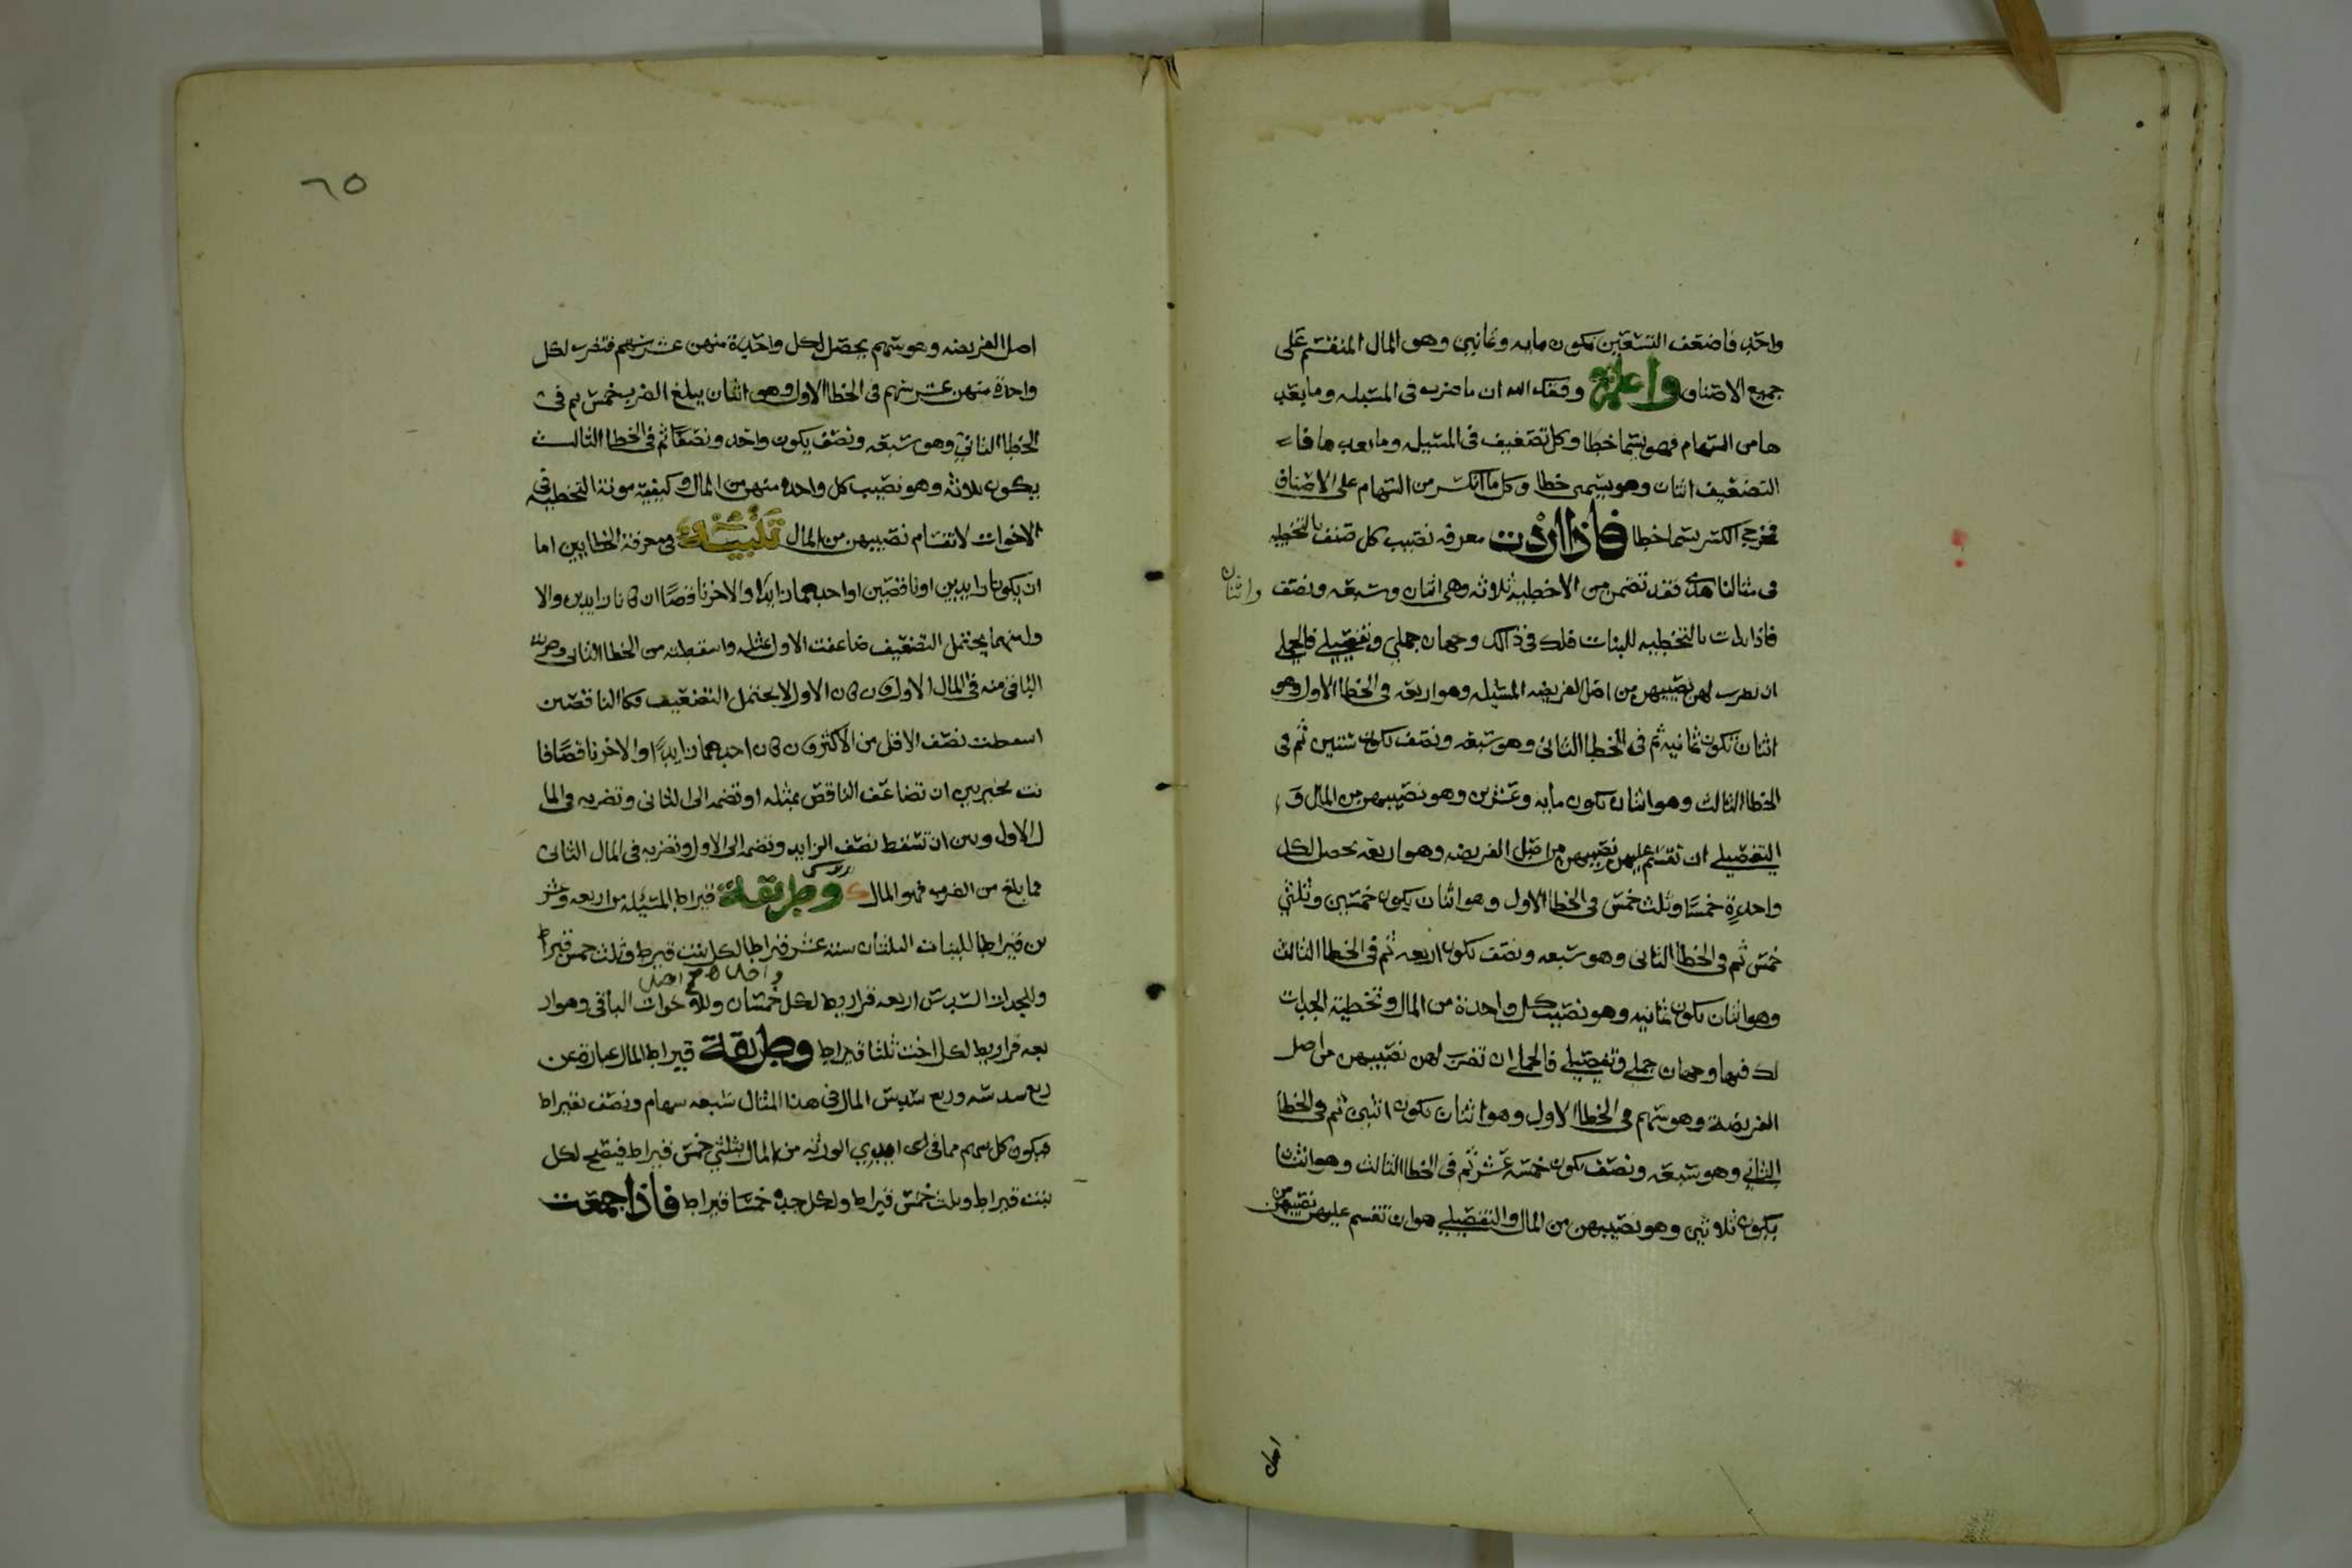 واحد فاضعف التسعين يكون مايه وثمانين وهو المال المنقسم على
جميع الاصناف واعلم وفقك الله ان ما ضرب في المسئله وما بعد
ها من السهام فهو يسما خطا وكل تضعيف في المسئيله وما بعدها فا
التضعيف اثنان وهو يسمى خطا وكل ما انكسر من السهام على الاصناف
فمخرج الكسر يسما خطا فاذا اردت معرفه نصيب كل صنف بالتخطيه
في مثالنا هذى فقد تضمن من الاخطيه ثلاثه وهي اثنان وسبعه ونصف واثنان
فاذا بدات بالتخطيه للبنات فلك في ذالك وجهان جملي وتفصيلي فالجملي
ان تضرب لهن نصيبهن من اصل الفريضه المسئله وهو اربعه في الخطا الاول وهو
اثنان تكون ثمانيه ثم في الخطا الثاني وهو سبعه ونصف تكون ستين ثم في
الخطا الثالث وهو اثنان تكون مايه وعشرين وهو نصيبهن من المال و
التفصيلي ان تقسم عليهن نصيبهن من اصل الفريضه وهو اربعه يحصل لكل
واحدة خمسا وثلث خمس في الخطا الاول وهو اثنان يكون خمسين وثلثي
خمس ثم في الخطا الثاني وهو سبعه ونصف تكون اربعه ثم في الخطا الثالث
وهو اثنان تكون ثمانيه وهو نصيب كل واحدة من المال وتخطية الجدات
لك فيها وجهان جملي وتفصيلي فالجملي ان تضرب لهن نصيبهن من اصل
الفريضة وهو سهم في الخطا الاول وهو اثنان تكون اثنين ثم في الخطا
الثاني وهو سبعه ونصف يكون خمسه عشر ثم في الخطا الثالث وهو اثنان
يكون ثلاثين وهو نصيبهن من المال والتفصيلي هو ان تقسم عليهن نصيبهن من
اصل
٦٥
اصل الفريضه وهو سهم يحصل لكل واحدة منهن عشر سهم فتضرب لكل
واحدة منهن عشر سهم في الخطا الاول وهو اثنان يبلغ الضرب خمس ثم في
الخطا الثاني وهو سبعه ونصف يكون واحد ونصفا ثم في الخطا الثالث
يكون ثلاثه وهو نصيب كل واحدة منهن من المال وكيفيه مونة التخطيه في
الاخوات لانقسام نصيبهن من المال تنبيه في معرفة الخطايين اما
ان يكونا زايدين او ناقصين او احدهما زايدا والاخر ناقصا ان كانا زايدين والا
ول منهما يحتمل التضعيف ضاعفت الاول بمثله واسقطته من الخطا الثاني وضربت
الباقي منه في المال الاول وان كان الاول لا يحتمل التضعيف فكالناقصين
اسقطت نصف الاقل من الاكثر وان كان احدهما زايدا والاخر ناقصا فا
نت مخير بين ان تضاعف الناقص بمثله او تضمه الى الثاني وتضربه في الما
ل الاول وبين ان تسقط نصف الزايد وتضمه الى الاول وتضربه في المال الثاني
فما بلغ من الضرب فهو المال وطريقة قيراط المسئله من اربعه وعشر
ين قيراطا للبنات الثلثان سته عشر قيراطا لكل بنت قيراط وثلث خمس قيراط
والجدات السدس اربعه قراريط لكل خمسان وللاخوات الباقي وهو ار
بعه قراريط لكل اخت ثلثا قيراط وطريقة قيراط المال عبارة عن
ربع سدسه وربع سدس المال في هذا المثال سبعه سهام ونصف بقيراط
فيكون كل سهم مما في ايدي الورثه من المال بثلثي خمس قيراط فيصح لكل
بنت قيراط وثلث خمس قيراط ولكل جده خمسا قيراط فاذا جمعت